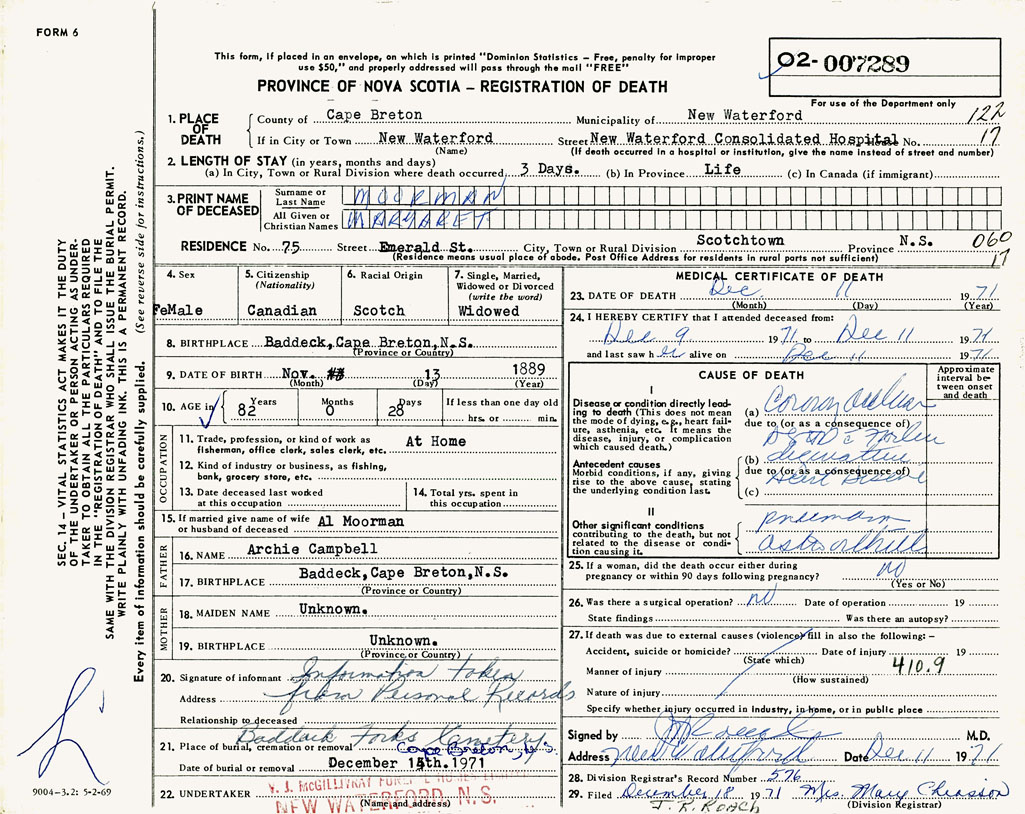 FORM 6
This form, if placed in an envelope, on which is printed "Dominion Statistics – Free, penalty for improper
use $50," and properly addressed will pass through the mail "FREE"
O2-007289
PROVINCE OF NOVA SCOTIA – REGISTRATION OF DEATH
For use of the Department only
122
17
1. PLACE OF DEATH
County of Cape Breton Municipality of New Waterford
If in City or Town New Waterford Street New Waterford Consolidated Hospital House No.
(Name) (If death occurred in a hospital or institution, give the name instead of street and number)
2. LENGTH OF STAY (in years, months and days)
(a) In City, Town or Rural Division where death occurred 3 Days. (b) In Province Life (c) In Canada (if immigrant)
3. PRINT NAME OF DECEASED
Surname or Last Name MOORMAN
All Given or Christian Names MARGARET
RESIDENCE No. 75 Street Emerald St. City, Town or Rural Division Scotchtown Province N.S. 060
17
(Residence means usual place of abode. Post Office Address for residents in rural parts not sufficient)
4. Sex
FeMale
5. Citizenship
(Nationality)
Canadian
6. Racial Origin
Scotch
7. Single, Married,
Widowed or Divorced
(write the word)
Widowed
8. BIRTHPLACE Baddeck,Cape Breton,N.S.
(Province or Country)
9. DATE OF BIRTH Nov. 13 1889
(Month) (Day) (Year)
10. AGE in
Years Months Days If less than one day old
82 0 28 hrs. or min.
OCCUPATION
11. Trade, profession, or kind of work as
fisherman, office clerk, sales clerk, etc. At Home
12. Kind of industry or business, as fishing,
bank, grocery store, etc.
13. Date deceased last worked
at this occupation
14. Total yrs. spent in
this occupation
15. If married give name of wife
or husband of deceased Al Moorman
FATHER
16. NAME Archie Campbell
17. BIRTHPLACE Baddeck,Cape Breton,N.S.
(Province or Country)
MOTHER
18. MAIDEN NAME Unknown.
19. BIRTHPLACE Unknown.
(Province or Country)
20. Signature of informant Information taken
Address from Personal Records
Relationship to deceased
Baddeck Forks Cemetery
21. Place of burial, cremation or removal Cape Breton, N.S.
Date of burial or removal December 15th.1971
22. UNDERTAKER V. J. McGILLIVRAY
NEW WATERFORD, N. S.
(Name and address)
MEDICAL CERTIFICATE OF DEATH
23. DATE OF DEATH Dec. 11 1971
(Month) (Day) (Year)
24. I HEREBY CERTIFY that I attended deceased from:
Dec 9 1971 to Dec 11 1971
and last saw her alive on Dec 11 1971
CAUSE OF DEATH
Approximate
interval be-
tween onset
and death
I
Disease or condition directly lead-
ing to death (This does not mean
the mode of dying, e.g., heart fail-
ure, asthenia, etc. It means the
disease, injury, or complication
which caused death.)
(a)
due to (or as a consequence of)
Antecedent causes
Morbid conditions, if any, giving
rise to the above cause, stating
the underlying condition last.
(b)
due to (or as a consequence of)
Heart Disease
(c)
II
Other significant conditions
contributing to the death, but not
related to the disease or condi-
tion causing it.
25. If a woman, did the death occur either during
pregnancy or within 90 days following pregnancy? no
(Yes or No)
26. Was there a surgical operation? no Date of operation 19
State findings Was there an autopsy?
27. If death was due to external causes (violence) fill in also the following:–
Accident, suicide or homicide? Date of injury 19
(State which)
Manner of injury 410.9
(How sustained)
Nature of injury
Specify whether injury occurred in industry, in home, or in public place
Signed by M.D.
Address New Waterford Date Dec 11 1971
28. Division Registrar's Record Number 576
29. Filed December 18 1971 Mrs. Mary Chiasson
J. R. ROACH (Division Registrar)
SEC. 14 – VITAL STATISTICS ACT MAKES IT THE DUTY
OF THE UNDERTAKER OR PERSON ACTING AS UNDER-
TAKER TO OBTAIN ALL THE PARTICULARS REQUIRED
IN THE "REGISTRATION OF DEATH" AND TO FILE THE
SAME WITH THE DIVISION REGISTRAR WHO SHALL ISSUE THE BURIAL PERMIT.
WRITE PLAINLY WITH UNFADING INK. THIS IS A PERMANENT RECORD.
Every item of information should be carefully supplied. (See reverse side for instructions.)
9004-3.2: 5-2-69